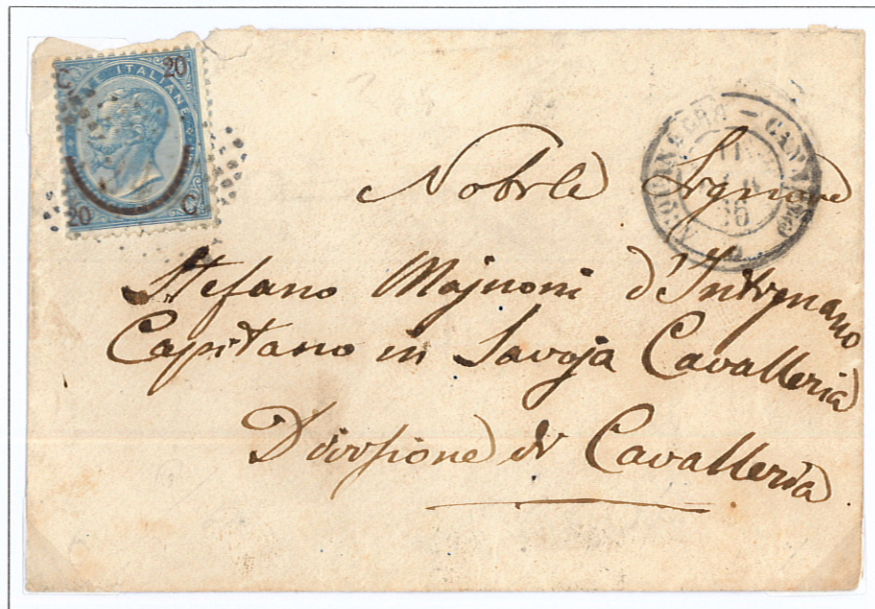 C 20
E ITALIANE
20 C
Nobile Signore
Stefano Majnoni d'Intignano
Capitano in Savoja Cavalleria
Divisione di Cavalleria